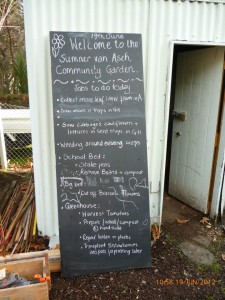 19th June
Welcome to the
Sumner van Asch
Community Garden.
Jobs to do today
• Collect more leaf litter from
• Sow in trays in G.H
• Sow cabbages cauliflowers +
lettuces in seed trays in G.H
• Weeding around existing crops
• School Beds:
Stake peas
Remove Beans → compost
Big bed:
Cut off Broccoli flowers
• Greenhouse:
Harvest Tomatoes
Prepare / weed / compost
Repot in plants
Transplant Strawberries
10:58 19 JUN 2012